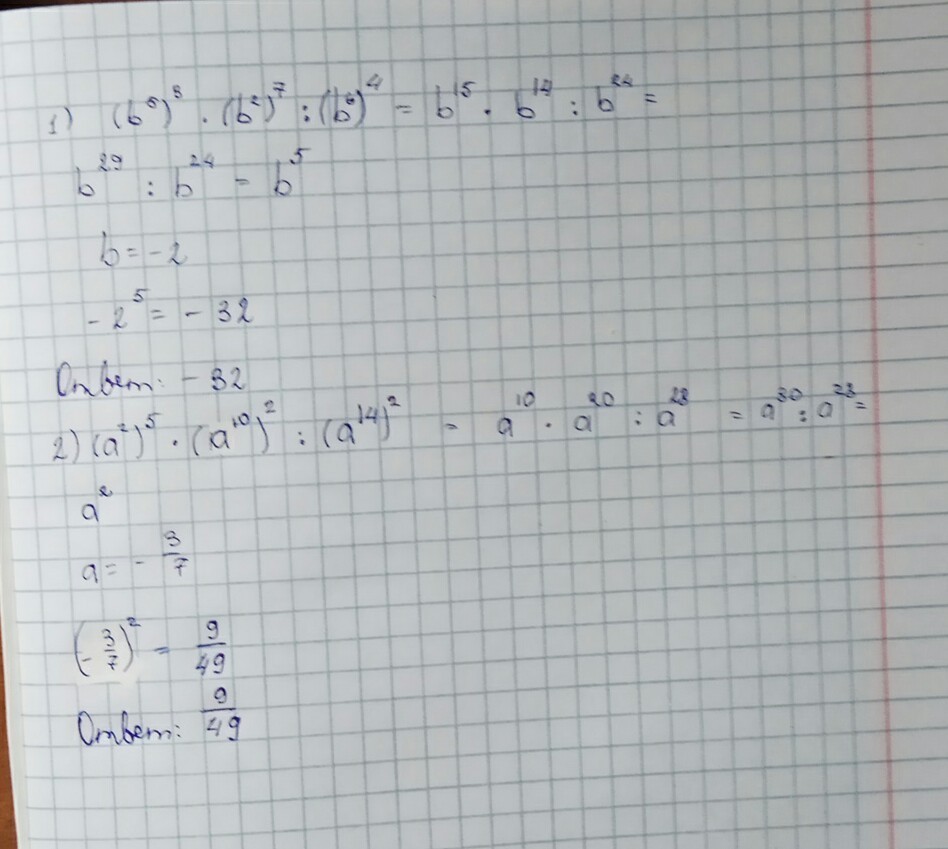 1) (b⁵)³ · (b²)⁷ : (b⁶)⁴ = b¹⁵ · b¹⁴ : b²⁴ =
b²⁹ : b²⁴ = b⁵
b = -2
-2⁵ = - 32
Ответ: - 32
2) (a²)⁵ · (a¹⁰)² : (a¹⁴)² = a¹⁰ · a²⁰ : a²⁸ = a³⁰ : a²⁸ =
a²
a = - 3/7
(- 3/7)² = 9/49
Ответ: 9/49